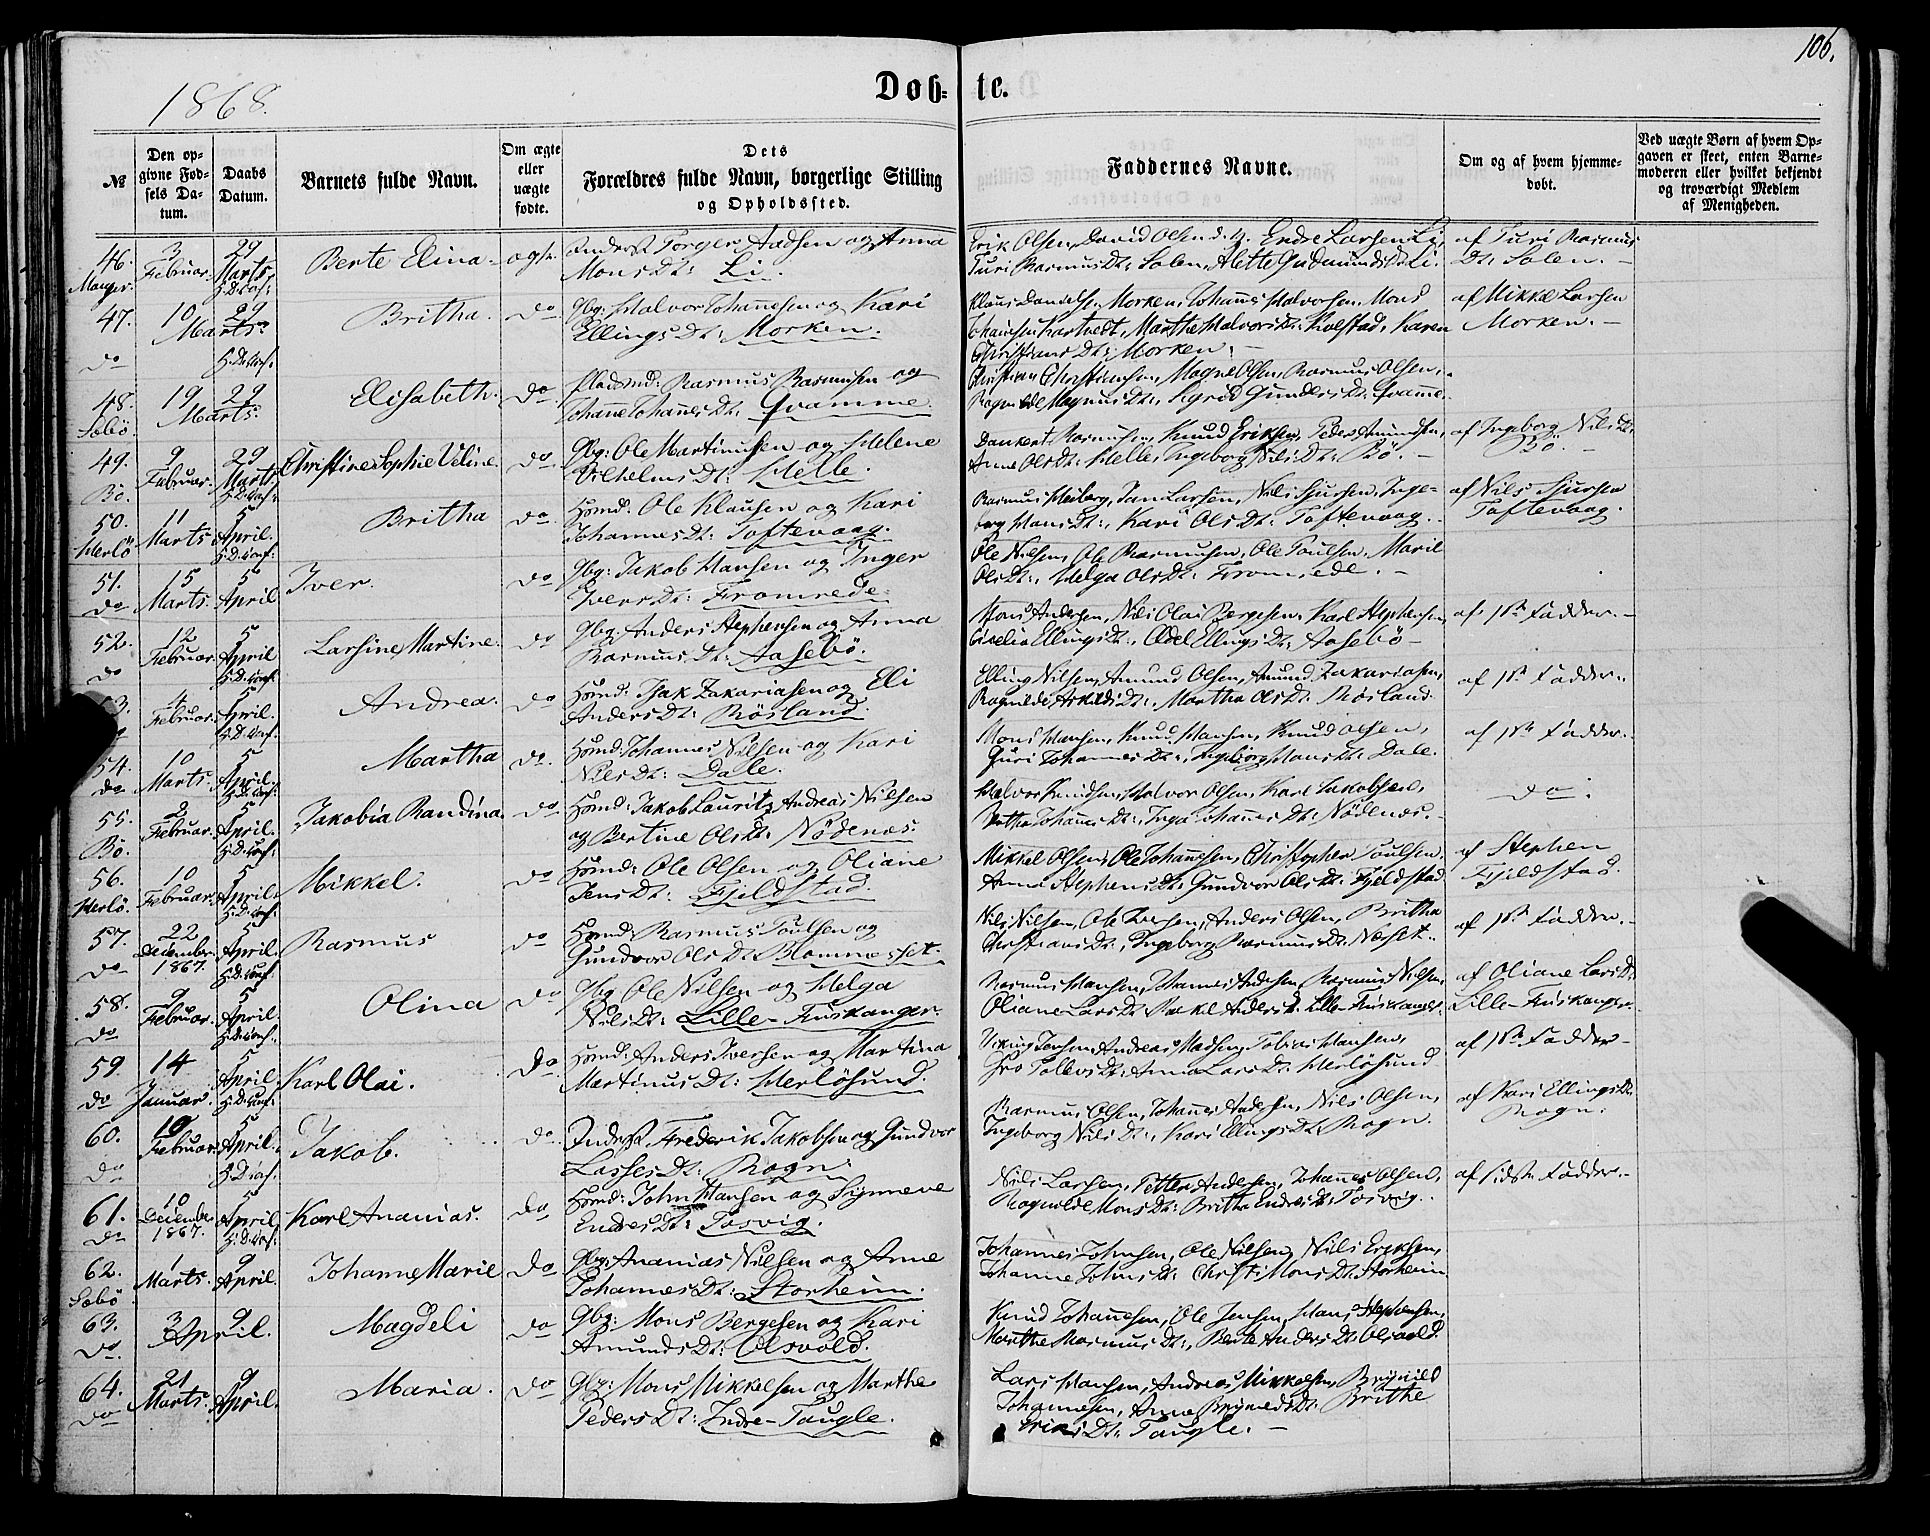 106.
1868.
Døb- te.
№
Den opgivne Fødsels Datum.
Daabs Datum.
Barnets fulde Navn.
Om ægte eller uægte fødte.
Dets Forældres fulde Navn, borgerlige Stilling og Opholdssted.
Faddernes Navne.
Om og af hvem hjemmedøbt.
Ved uægte Børn af hvem Opgaven er skeet, enten Barnemoderen eller hvilket bekjendt og troværdigt Medlem af Menigheden.
46. Manger. 3 Februar. 29 Marts. Berte Elina. Torger Aadsen og Anna
Mons Dt: Li.
Erik Olsen, David Olsen Endre Larsen Li,
Turi Rasmus Dt: Solen, Alette Gudmunds Dt: Li.
af Turi Rasmus
Dt: Solen. -
47. do 10 Marts. 29 Britha. do Gbg: Halvor Johannesen og Kari
Ellings Dt: Morken.
Klaus Morken, Johannes Halvorsen, Mons
Marthe Halvors Dt: Kolstad, Karen
Christians Dt: Morken.
af Mikkel Larsen
Morken. -
48. Sæbö. 19 Marts. 29 Elisabeth. do Pladsmd: Rasmus Rasmusen og
Johanne Johannes Dt: Qvamme.
Christian Christiansen, Magne Olsen, Rasmus Olsen,
Ragnilde Magnus Dt:, Sigrid Gunders Dt: Qvamme.
49. Bö. 9 Februar. 29 Marts. Christine Sophie Veline. do Gbg: Ole Martinusen og Helene
Vilhelms Dt: Helle.
Dankert Rasmusen, Knud Eriksen, Peder Amundsen,
Anne Ols Dt: Helle, Ingeborg Nils Dt: Bö. -
af Ingeborg Nils Dt:
Bö. -
50. Herlö 11 Marts. 5 April. Britha do Huusmd: Ole Klausen og Kari
Johannes Dt: Toftevaag.
Rasmus Heiberg, Jan Larsen, Nils Sjursen, Inge-
borg Hans Dt:, Kari Ols Dt: Toftevaag. -
af Nils Sjursen
Toftevaag.
51. do 15 Marts. 5 April Iver. do Gbg: Jakob Hansen og Inger
Ivers Dt: Fromrede.
Ole Nilsen, Ole Rasmusen, Ole Poulsen, Maril
Ols Dt:, Helga Ols Dt: Fromrede. -
52. do 12 Februar. 5 April Larsine Martine. do Gbg: Anders Stephensen og Anna
Rasmus Dt: Aasebö.
Mons Andersen, Nils Olai Bergesen, Karl Stephensen,
Ellings Dt:, Odel Ellings Dt: Aasebö -
af 1ste Fadder. -
53. 4 Februar. 5 April. Andrea. do Huusmd: Isak Zakariasen og Eli
Anders Dt: Rösland.
Elling Nilsen, Amund Olsen, Amund Zakariasen,
Ragnilde Dt:, Martha Ols Dt: Rösland.
af 1ste Fadder.
54. do 10 Marts. 5 April. Martha do. Huusmd: Johannes Nilsen og Kari
Nils Dt: Dale.
Mons Hansen, Knud Hansen, Knud Olsen,
Guri Johannes Dt:, Ingeborg Hans Dt: Dale.
af 1ste Fadder.
55. Bö. 2 Februar. 5 April. Jakobia Randina do Huusmd: Jakob Lauritz Andreas Nilsen
og Bertine Ols Dt: Nödenæs.
Halvor Knudsen, Halvor Olsen, Karl Jakobsen,
Johannes Dt:, Inga Johannes Dt: Nödenæs. -
do.
56. Herlö. 10 Februar. 5 April. Mikkel. do Huusmd: Ole Olsen og Oliane
Jens Dt: Fjeldstad.
Mikkel Olsen, Ole Johannesen, Christopher Poulsen,
Anna Stephens Dt:, Gundvor Ols Dt: Fjeldstad
af Stephen
Fjeldstad.
57. do 22 December 1867. 5 April. Rasmus do Huusmd: Rasmus Poulsen og
Gundvor Ols Dt: Blommesset.
Nils Nilsen, Ole Iversen, Anders Olsen, Britha
Christians Dt:, Ingeborg Rasmus Dt: Nesset.
af 1ste Fadder. -
58. do 9 Februar. 5 April Olina do Gbg: Ole Nilsen og Helga
Nils Dt: Lille-Fuskanger.
Rasmus Hansen, Johannes Andersen, Rasmus Nilsen,
Oliane Lars Dt: Anders Dt: Lille-Fuskanger.
af Oliane Lars Dt:
Lille-Fuskanger.
59. do 14 Januar. 5 April. Karl Olai. do Huusmd: Anders Iversen og Martina
Martinus Dt: Herlösund.
Viking Jensen, Andreas Madsen, Tobias Hansen,
Gro Tollevs Dt:, Anna Lars Dt: Herlösund
af 1ste Fadder -
60. do 10 Februar. 5 April. Jakob. do. Frederik Jakobsen og Gundvor
Lasses Dt: Rogn.
Rasmus Olsen, Johannes Andersen, Nils Olsen,
Ingeborg Nils Dt:, Kari Ellings Dt: Rogn.
af Kari Ellings Dt:
Rogn.
61. do 10 December 1867. 5 April Karl Ananias. do Huusmd: John Hansen og Synneve
Endres Dt: Tosvig.
Nils Larsen, Petter Andersen, Johannes Olsen,
Ragnilde Mons Dt: Britha Endres Dt: Tosvig.
af sidste Fadder. -
62. Sæbö 1 Marts. 9 April. Johanne Marie do Gbg: Ananias Nilsen og Anne
Johannes Dt: Storheim.
Johannes Johnsen, Ole Nilsen, Nils Eriksen,
Johanne Johns Dt: Christi Mons Dt: Storheim
63. do. 3 April. 9 Magdeli do Gbg: Mons Bergesen og Kari
Amunds Dt: Olsvold.
Knud Johannesen, Ole Jensen, Hans Stephensen,
Marthe Rasmus Dt:, Berte Anders Dt: Olsvold.
64. do 21 Marts. 9 April. Maria. do Gbg: Mons Mikkelsen og Marthe
Peders Dt: Indre-Taugle.
Lars Hansen, Andreas Mikkelsen, Brynild
Johannesen, Anna Brynilds Dt: Brithe
Eriks Dt: Taugle. -